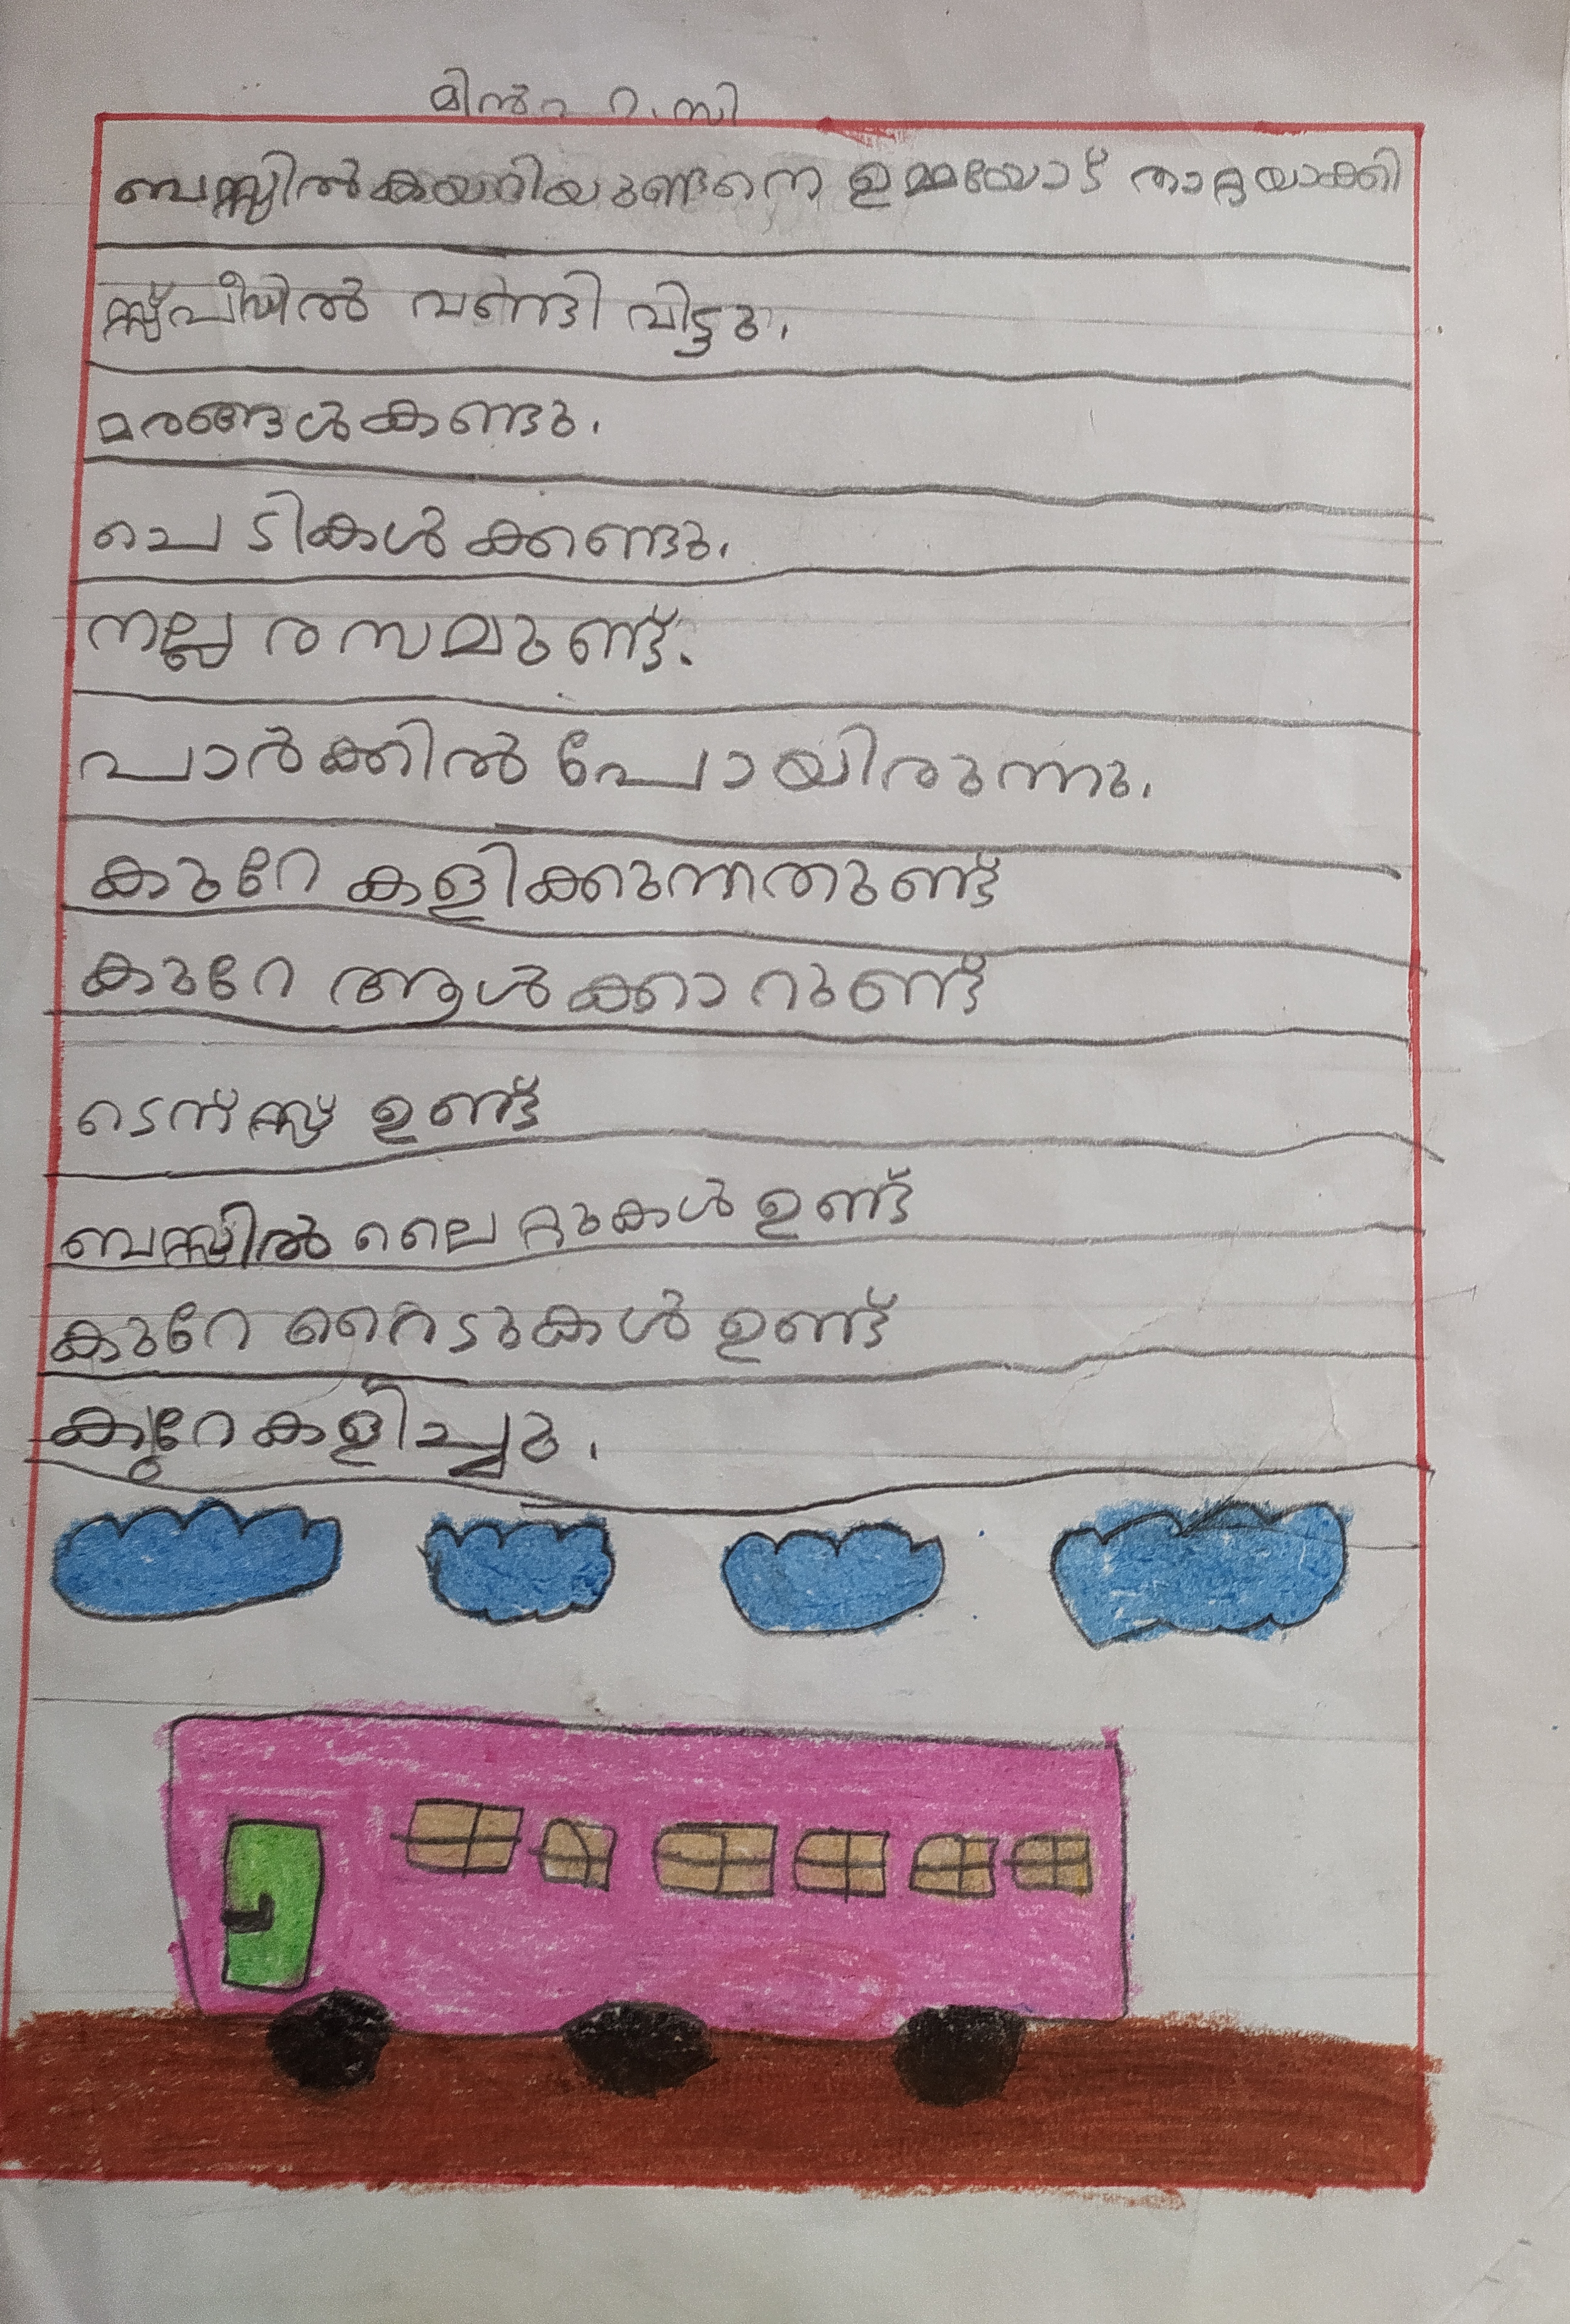 മിൻഹ റ.സി
ബസ്സിൽ കയറിയ ഉടനെ ഉമ്മയോട് താറ്റയാക്കി
സ്പീഡിൽ വണ്ടി വിട്ടു.
മരങ്ങൾ കണ്ടു.
ചെടികൾ ക്കണ്ടു.
നല്ല രസമുണ്ട്.
പാർക്കിൽ പോയിരുന്നു.
കുറേ കളിക്കുന്നതുണ്ട്
കുറേ ആൾക്കാറുണ്ട്
ടെൻസ്സ് ഉണ്ട്
ബസ്സിൽ ലൈറ്റുകൾ ഉണ്ട്
കുറേ റൈടുകൾ ഉണ്ട്
കുറേ കളിച്ചു.